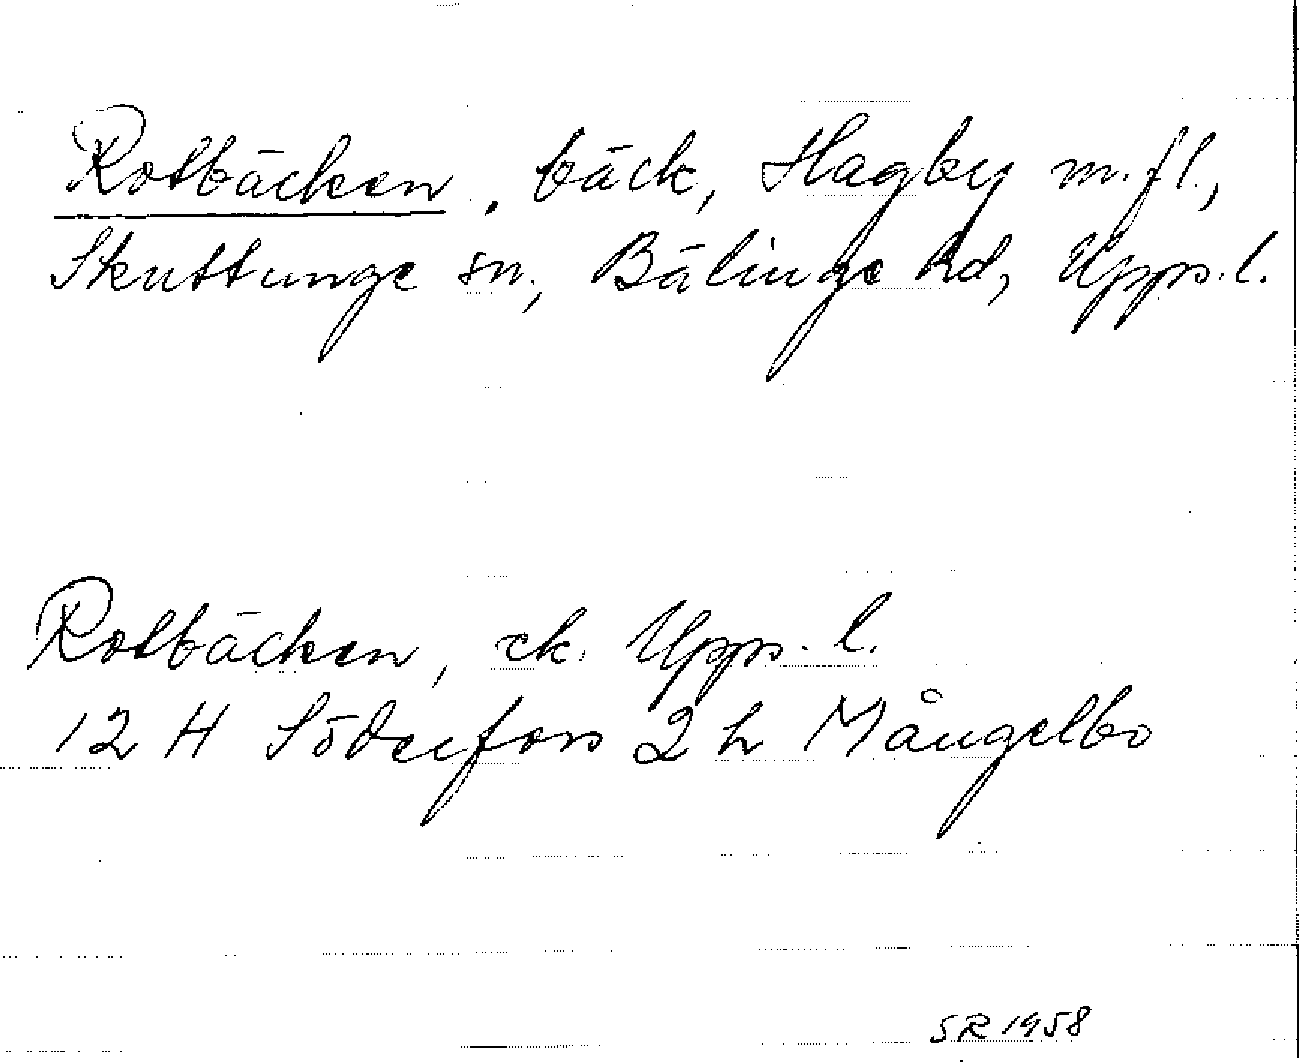 Rotbäcken, bäck, Hagby m.fl.,
Skuttunge sn, Bälinge hd, Upps. l.
Rotbäcken, ek. Upps. l.
12 H Söderfors 2 h Mångelbo
SR 1958